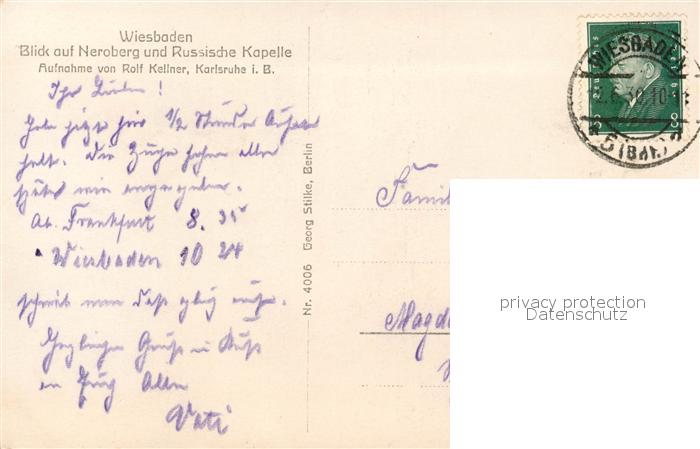 Wiesbaden
Blick auf Neroberg und Russische Kapelle
Aufnahme von Rolf Kellner, Karlsruhe i. B.
Ihr Lieben!
Habe jetzt hier 1/2 Stunde Aufent
halt. Die Züge fahren alle
später wie angegeben.
Ab. Frankfurt 8.35
" Wiesbaden 10 24
schreibt man
Herzlichen Gruß u Kuß
an Euch Allen
Vati
Nr. 4006 Georg Stilke, Berlin
WIESBADEN
.6.30.10
* 5 (Bhf.)
8 8
Famil
Magde
privacy protection
Datenschutz